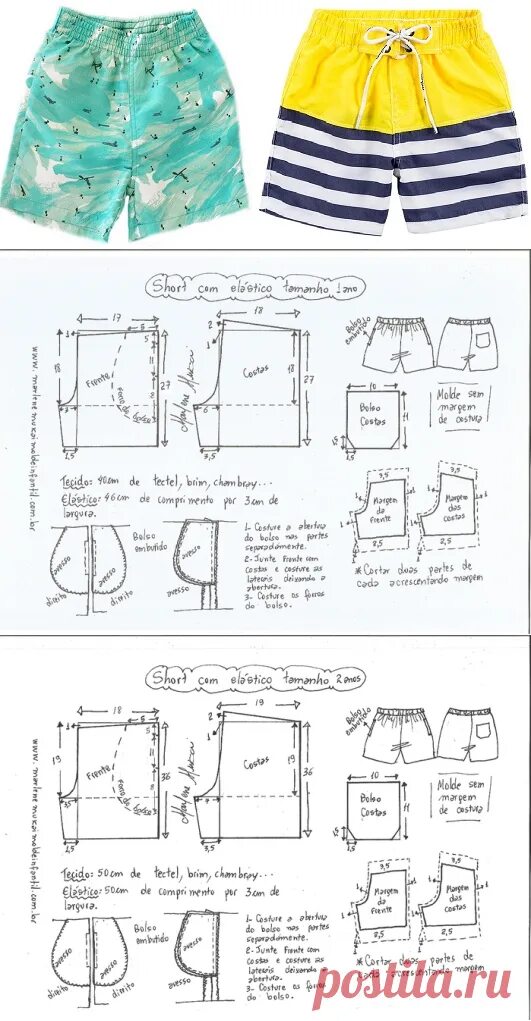 Short com elástico tamanho 1 ano
17
5
1
18
Frente
Forro do bolso
5
11
2
27
3
1,5
www.marlenemukaimoldeinfantil.com.br
Marlene Mukai
18
2
1
Costas
18
27
6
3,5
Bolso embutido
10
Bolso
Costas
11
1,5
Molde sem
margem
de costura
Tecido: 40cm de tectel, brim, chambray...
Elástico: 46cm de comprimento por 3cm de
largura.
avesso
direito
avesso
direito
Bolso
embutido
avesso
1- Costure a abertura
do bolso nas partes
separadamente.
2- Junte frente com
costas e costure as
laterais deixando a
abertura.
3- Costure os forros
do bolso.
3,5
1
Margem
da
Frente
1
2,5
3,5
1
Margem
das
costas
1
2,5
* Cortar duas partes de
cada acrescentando margem
Short com elástico tamanho 2 anos
18
5
1
19
Frente
Forro do bolso
5
11
2
36
3,5
1,5
www.marlenemukaimoldeinfantil.com.br
Marlene Mukai
19
2
1
Costas
19
36
3,5
Bolso embutido
10
Bolso
Costas
11
1,5
Molde sem
margem
de costura
Tecido: 50cm de tectel, brim, chambray...
Elástico: 50cm de comprimento por 3cm de
largura.
avesso
direito
avesso
direito
Bolso
embutido
avesso
1- Costure a abertura
do bolso nas partes
separadamente.
2- Junte frente com
costas e costure as
laterais deixando a
abertura.
3- Costure os forros
do bolso.
3,5
1
Margem
da
Frente
1
2,5
3,5
1
Margem
das
costas
1
2,5
* Cortar duas partes de
cada acrescentando margem
postila.ru